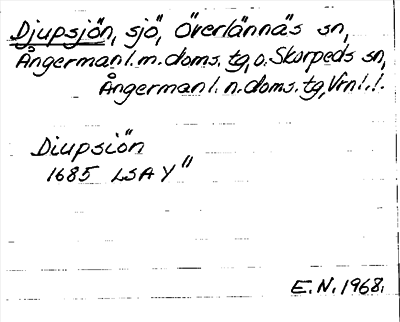 Djupsjön, sjö, Överlännäs sn,
Ångermanl. m. doms. tg, o. Skorpeds sn,
Ångermanl. n. doms. tg, Vrnl. l.
Diupsiön
1685 LSA Y"
E.N. 1968.